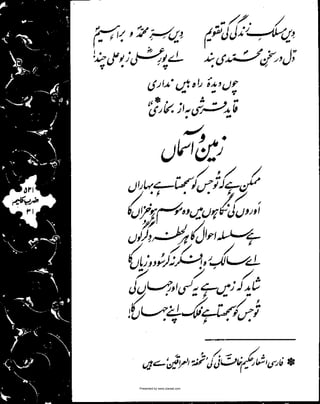 دیں مسلکِ زندگی کی تقویم
دیں سرِّ محمدؐ و براہیمؑ
دل در سخنِ محمدی بند
اے پورِ علیؓ ز بو علی چند
چوں دیدۂ راہ بیں نداری
قایدِ قرشی بہ از بخاری*
زمین و آسماں
ممکن ہے کہ تو جس کو سمجھتا ہے بہاراں
اَوروں کی نگاہوں میں وہ موسم ہو خزاں کا
ہے سلسلہ احوال کا ہر لحظہ دگرگوں
اے سالکِ رہ! فکر نہ کر سود و زیاں کا
شاید کہ زمیں ہے یہ کسی اور جہاں کی
تو جس کو سمجھتا ہے فلک اپنے جہاں کا!
۵۳۱
ضربِ کلیم
۳۱
* فارسی اشعار حکیم خاقانی کی 'تحفۃ العراقین' سے ہیں
Presented by www.ziaraat.com